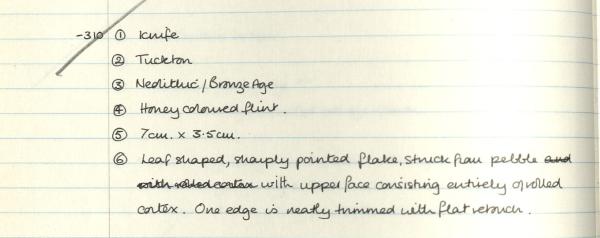 -310 ① Knife
② Tuckton
③ Neolithic/Bronze Age
④ Honey coloured flint.
⑤ 7cm. x 3.5cm.
⑥ Leaf shaped, sharply pointed flake, struck from pebble and
with rolled cortex with upper face consisting entirely of rolled
cortex. One edge is neatly trimmed with flat retouch.